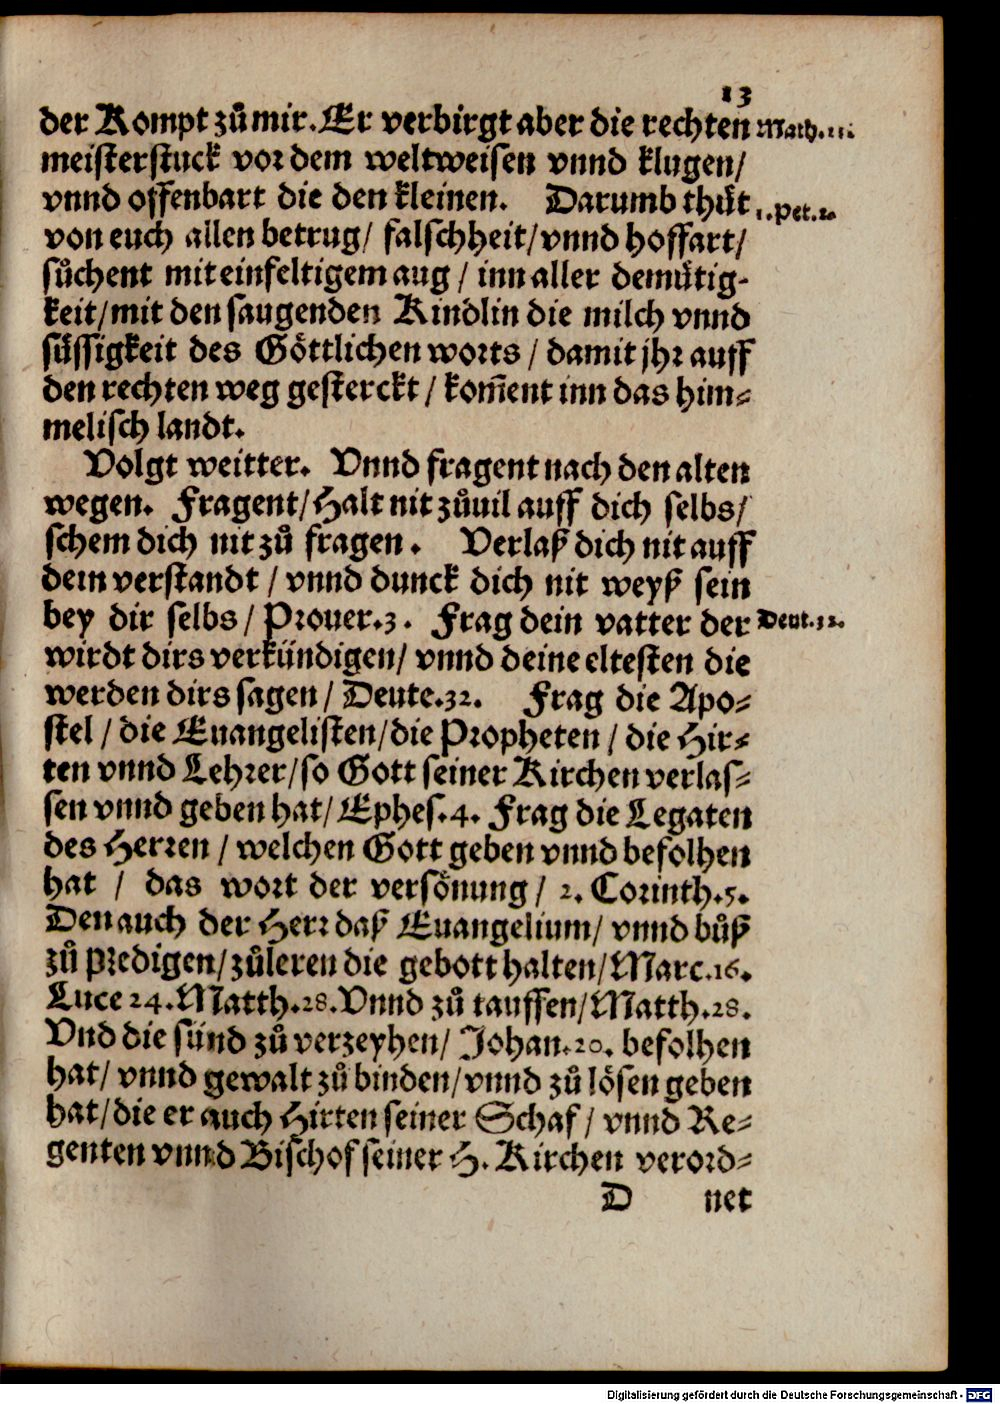 13
der Kompt zů mir. Er verbirgt aber die rechten
Math.11.
meisterstuck vor dem weltweisen vnnd klugen/
vnnd offenbart die den kleinen. Darumb thůt
1. Pet. 2.
von euch allen betrug/ falschheit/ vnnd hoffart/
sůchent mit einfeltigem aug / inn aller demůtig-
keit/ mit den saugenden Kindlin die milch vnnd
sůssigkeit des Göttlichen worts / damit jhr auff
den rechten weg gesterckt / kom̄ent inn das him-
melisch landt.
Volgt weitter. Vnnd fragent nach den alten
wegen. Fragent/ Halt nit zůuil auff dich selbs/
schem dich nit zů fragen. Verlaß dich nit auff
dein verstandt / vnnd dunck dich nit weyß sein
bey dir selbs / Prouer.3. Frag dein vatter der
Deut.32.
wirdt dirs verkündigen/ vnnd deine eltesten die
werden dirs sagen / Deute.32. Frag die Apo-
stel / die Euangelisten/ die Propheten / die Hir-
ten vnnd Lehrer/ so Gott seiner Kirchen verlas-
sen vnnd geben hat/ Ephes.4. Frag die Legaten
des Herren / welchen Gott geben vnnd befolhen
hat / das wort der versönung / 2. Corinth.5.
Den auch der Herr daß Euangelium/ vnnd bůß
zů predigen/ zůleren die gebott halten/ Marc.16.
Luce 24. Matth.28. Vnnd zů tauffen/ Matth.28.
Vnd die sünd zů verzeyhen/ Johan.20. befolhen
hat/ vnnd gewalt zů binden/ vnnd zů lösen geben
hat/ die er auch Hirten seiner Schaf / vnnd Re-
genten vnnd Bischof seiner H. Kirchen verord-
D net
Digitalisierung gefördert durch die Deutsche Forschungsgemeinschaft - DFG